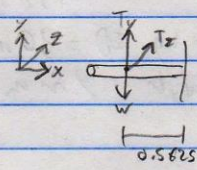 Y Z X
Ty
Tz
W
0.5625